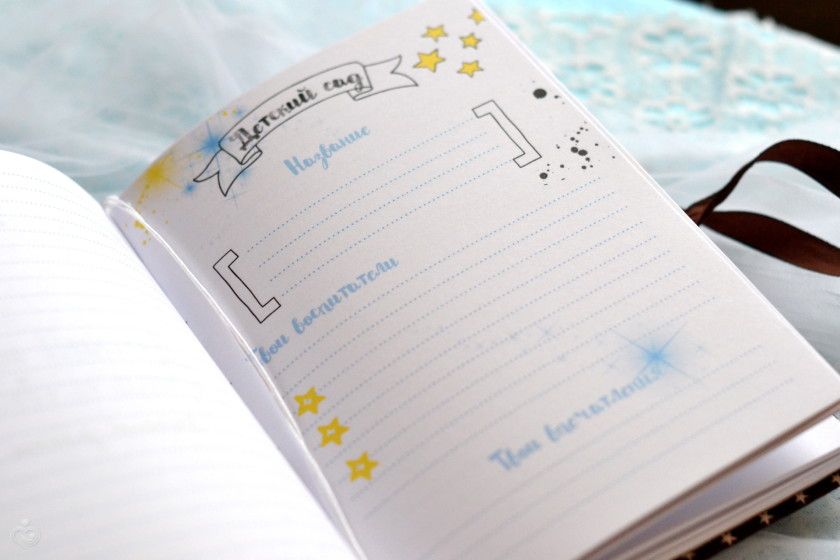 Детский сад
Название
Твои воспитатели
Твои впечатления